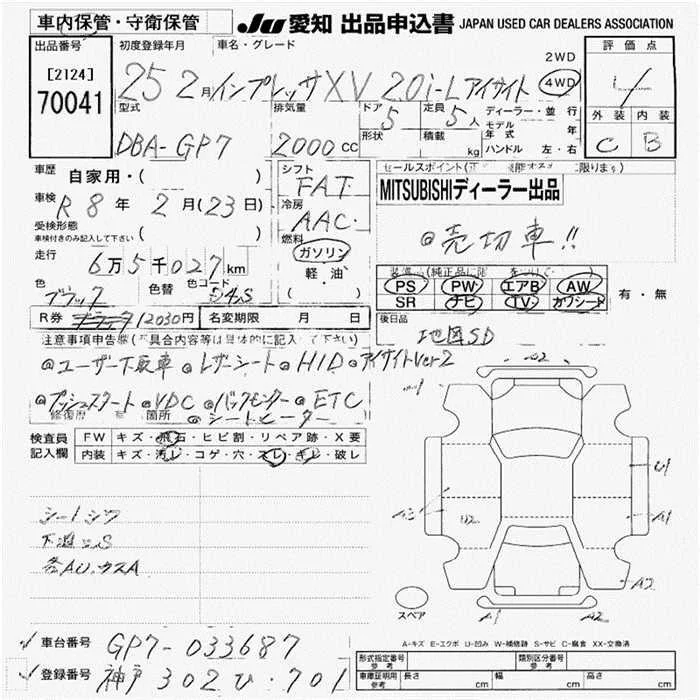 車内保管・守衛保管
JU 愛知 出品申込書 JAPAN USED CAR DEALERS ASSOCIATION
出品番号
[2124]
70041
初度登録年月 車名・グレード
25 2月 インプレッサXV 2.0i-L アイサイト
2WD
4WD
評価点
4
外装 内装
C B
型式 排気量 ドア 5 定員 5人 ディーラー・並行
DBA-GP7 2000cc
形状 積載 kg
モデル年式 年
ハンドル 左・右
車歴 自家用・( )
車検 R8年 2月(23日)
受検形態
車検付きのみ記入して下さい ( )
走行 6万5千027km
色 色替 色コード
ブラック D4S
シフト
FAT
冷房
AAC
燃料
ガソリン
軽・油
( )
R券 12030円 名変期限 月 日
MITSUBISHIディーラー出品
◎売切車!!
PS PW エアB AW
SR ナビ TV カワシート
有・無
後日品
地図SD
注意事項申告欄(不具合内容等は具体的に記入して下さい)
◎ユーザー下取車 ◎レザーシート ◎HID ◎アイサイトVer2
◎プッシュスタート ◎VDC ◎バックモニター ◎ETC
修復歴 有 箇所
◎シートヒーター
検査員記入欄
FW キズ・飛石・ヒビ割・リペア跡・X要
内装 キズ・汚レ・コゲ・穴・スレ・キレ・破レ
シートシワ
下廻りS
各AU.カスA
A2
U2
A1
A1
A2
A2
スペア
A-キズ E-エクボ U-凹み W-補修跡 S-サビ C-腐食 XX-交換済
車台番号 GP7-033687
登録番号 神戸 302 ひ・701
形式指定番号 参考 類別区分番号 参考
車庫証明用 参考 長さ cm 幅 cm 高さ cm